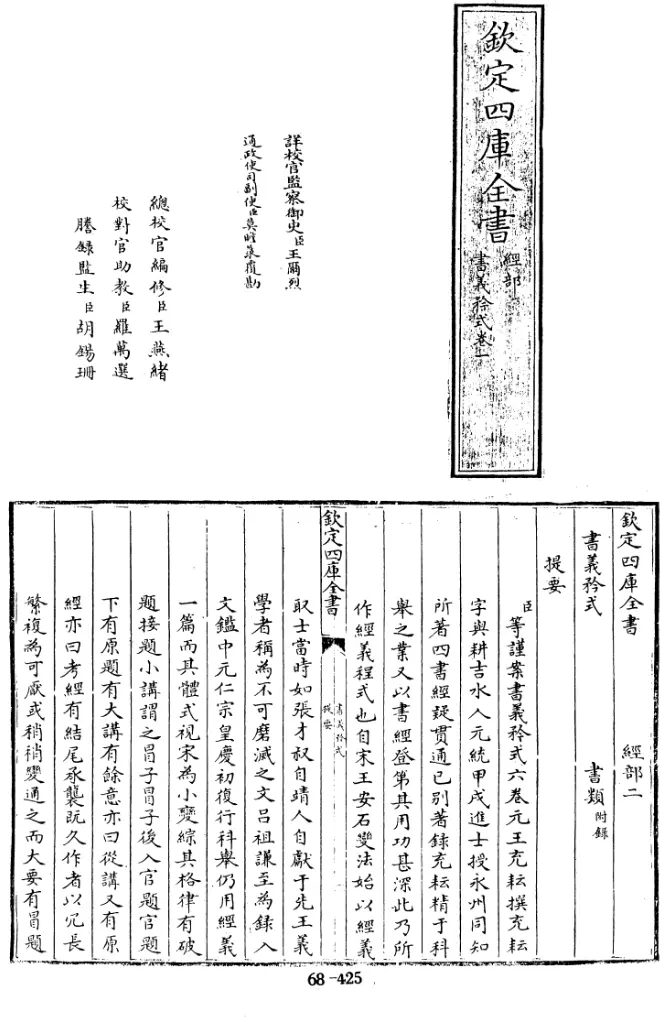 欽定四庫全書
經部
書義矜式卷一
詳校官監察御史臣王爾烈
通政使司副使臣莫瞻菉覆勘
總校官編修臣王燕緒
校對官助教臣羅萬選
謄錄監生臣胡錫珊
欽定四庫全書 經部二
書義矜式 書類附錄
提要
臣等謹案書義矜式六卷元王充耘撰充耘
字與耕吉水人元統甲戌進士授永州同知
所著四書經疑貫通已別著錄充耘精于科
舉之業又以書經登第其用功甚深此乃所
作經義程式也自宋王安石變法始以經義
欽定四庫全書 書義矜式 提要
取士當時如張才叔自靖人自獻于先王義
學者稱為不可磨滅之文吕祖謙至為錄入
文鑑中元仁宗皇慶初復行科舉仍用經義
一篇而其體式視宋為小變綜其格律有破
題接題小講謂之冒子冒子後入官題官題
下有原題有大講有餘意亦曰從講又有原
經亦曰考經有結尾承襲既久作者以冗長
繁複為可厭或稍稍變通之而大要有冒題
68-425